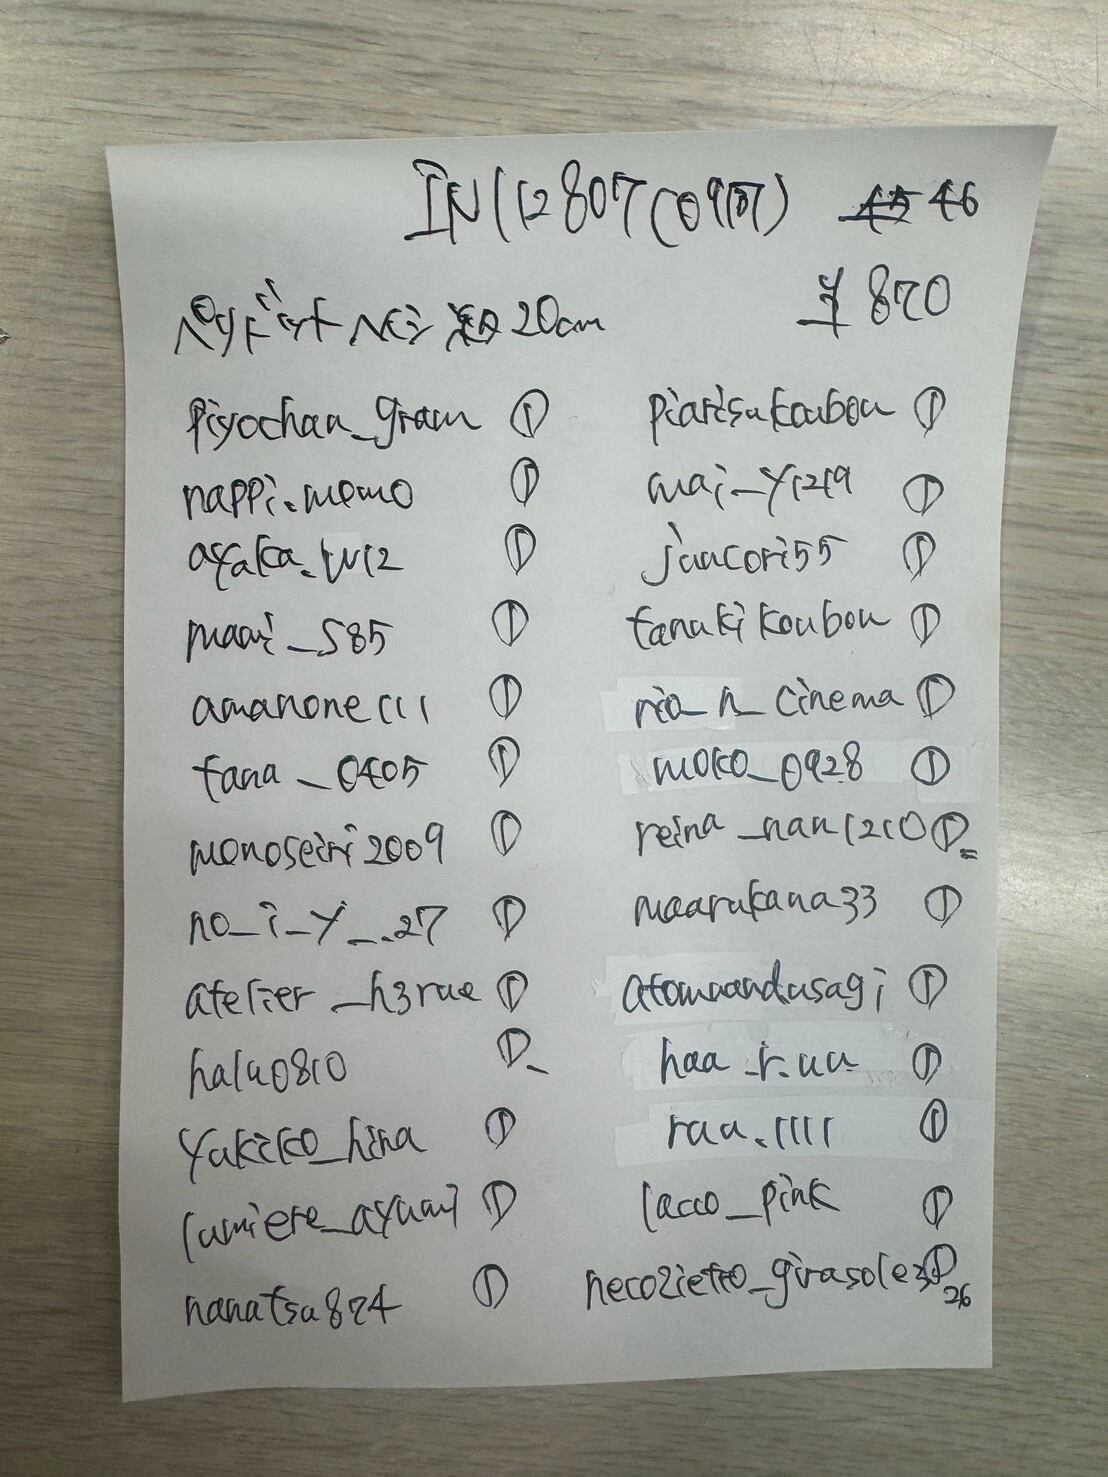 IN112807(0917) 45 46
¥870
ペリドット ペン類 20cm
piyochan_gram ①
nappi.momo ①
ayaka.w12 ①
maai_s85 ①
amanone111 ①
tana_0405 ①
monoseiri2009 ①
no_i_y__.27 ①
atelier_h3rue ①
halu0810 ①
yukiko_hina ①
lumiere_ayumi ①
nanatsu874 ①
piarisukoubou ①
mai_y1219 ①
juncori55 ①
tanukikoubou ①
rio_n_cinema ①
moko_0928 ①
reina_nan1210 ①
maarukana33 ①
atomuandusagi ①
haa_r.uu ①
ruu.1111 ①
lacco_pink ①
necozietto_girasole3 ①
26